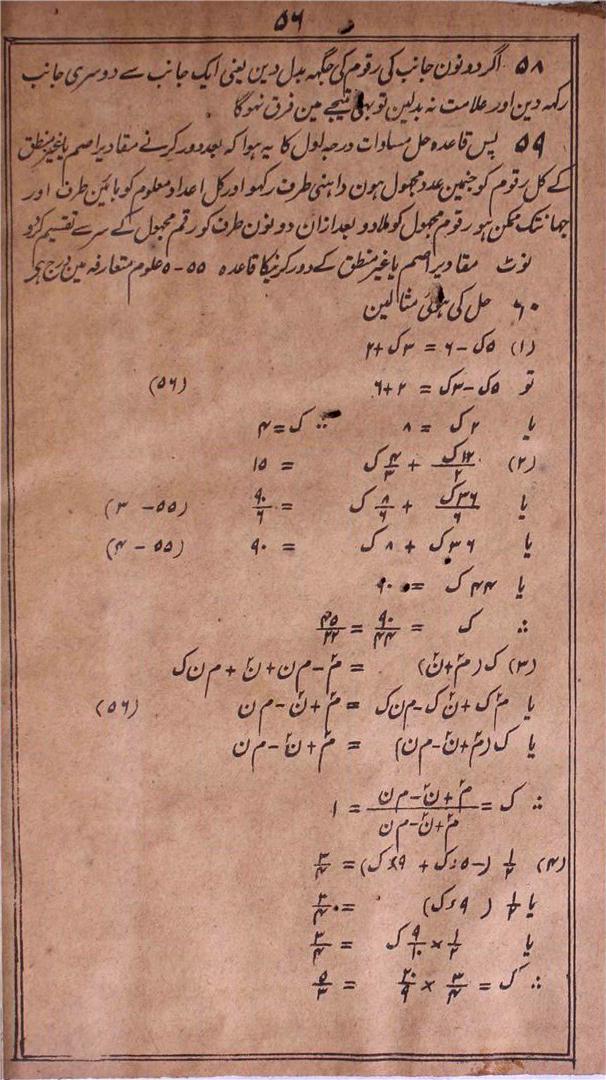 ۵۶
۵۸ اگر دونون جانب کی رقوم کی جگہہ بدل دین یعنی ایک جانب سے دوسری جانب
رکہہ دین اور علامت نہ بدلین توبھی نتیجے مین فرق نہوگا
۵۹ پس قاعدہ حل مساوات درجہ اول کا یہ ہوا کہ بعد دور کرنے مقادیر اصم یا غیر منطق
کے کل رقوم کو جنمین عدد مجہول ہون داہنی طرف رکہو اور کل اعداد معلوم کو بائین طرف اور
جہانتک ممکن ہو رقوم مجہول کو ملادو بعد ازان دونون طرف کو رقم مجہول کے سر سے تقسیم کردو
نوٹ مقادیر اصم یا غیر منطق کے دور کرنیکا قاعدہ ۵۵-۵ علوم متعارفہ مین درج ہے
۶۰ حل کی ہوئی مثالین
(۱) ۵ک - ۶ = ۳ک + ۲
تو ۵ک - ۳ک = ۲ + ۶ (۵۶)
یا ۲ک = ۸ ∴ ک = ۴
(۲) ۱۲ک/۲ + ۴/۳ ک = ۱۵
یا ۳۶ک/۶ + ۸/۶ ک = ۹۰/۶ (۵۵ - ۳)
یا ۳۶ک + ۸ک = ۹۰ (۵۵ - ۴)
یا ۴۴ک = ۹۰
∴ ک = ۹۰/۴۴ = ۴۵/۲۲
(۳) ک(م۲+ن۲) = م۲ - م ن + ن۲ + م ن ک
یا م۲ک + ن۲ک - م ن ک = م۲ + ن۲ - م ن (۵۶)
یا ک(م۲+ن۲-م ن) = م۲ + ن۲ - م ن
∴ ک = م۲+ن۲-م ن / م۲+ن۲-م ن = ۱
(۴) ۱/۲ = ۳/۴
یا ۱/۲ = ۳/۴
یا ۱/۲ × ۹/۱۰ ک = ۳/۴
∴ ک = ۳/۴ × ۲۰/۹ = ۵/۳